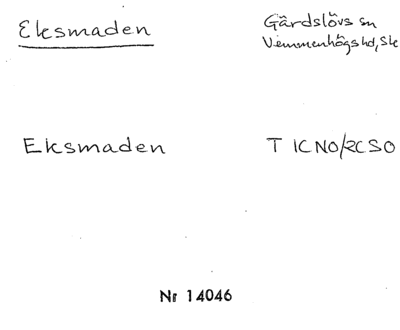 Eksmaden
Gärdslövs sn
Vemmenhögs hd, Sk
Eksmaden
T 1CNO/2CSO
Nr 14046